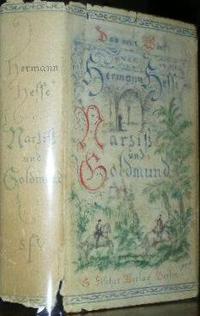 Hermann
Hesse
Narziß
und
Goldmund
SFV
Hermann Hesse
Narziß
und
Goldmund
S. Fischer Verlag Berlin